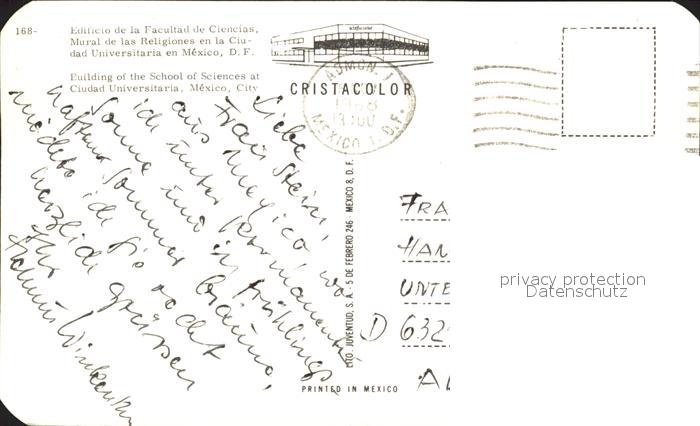 168-
Edificio de la Facultad de Ciencias,
Mural de las Religiones en la Ciu-
dad Universitaria en México, D. F.
Building of the School of Sciences at
Ciudad Universitaria, México, City
CRISTACOLOR
ADMON. 1
1968
MEXICO 1, D.F.
Liebe
Frau Stein,
aus Mexico, wo
ich unter permanenter
Sonne und in frühlings
haftem Sommer
möchte ich Sie recht
herzlich grüssen
Ihr
LITO. JUVENTUD, S. A. - 5 DE FEBRERO 246 MEXICO 8, D. F.
PRINTED IN MEXICO
FRA
HAN
UNTE
D 632
AL
privacy protection
Datenschutz